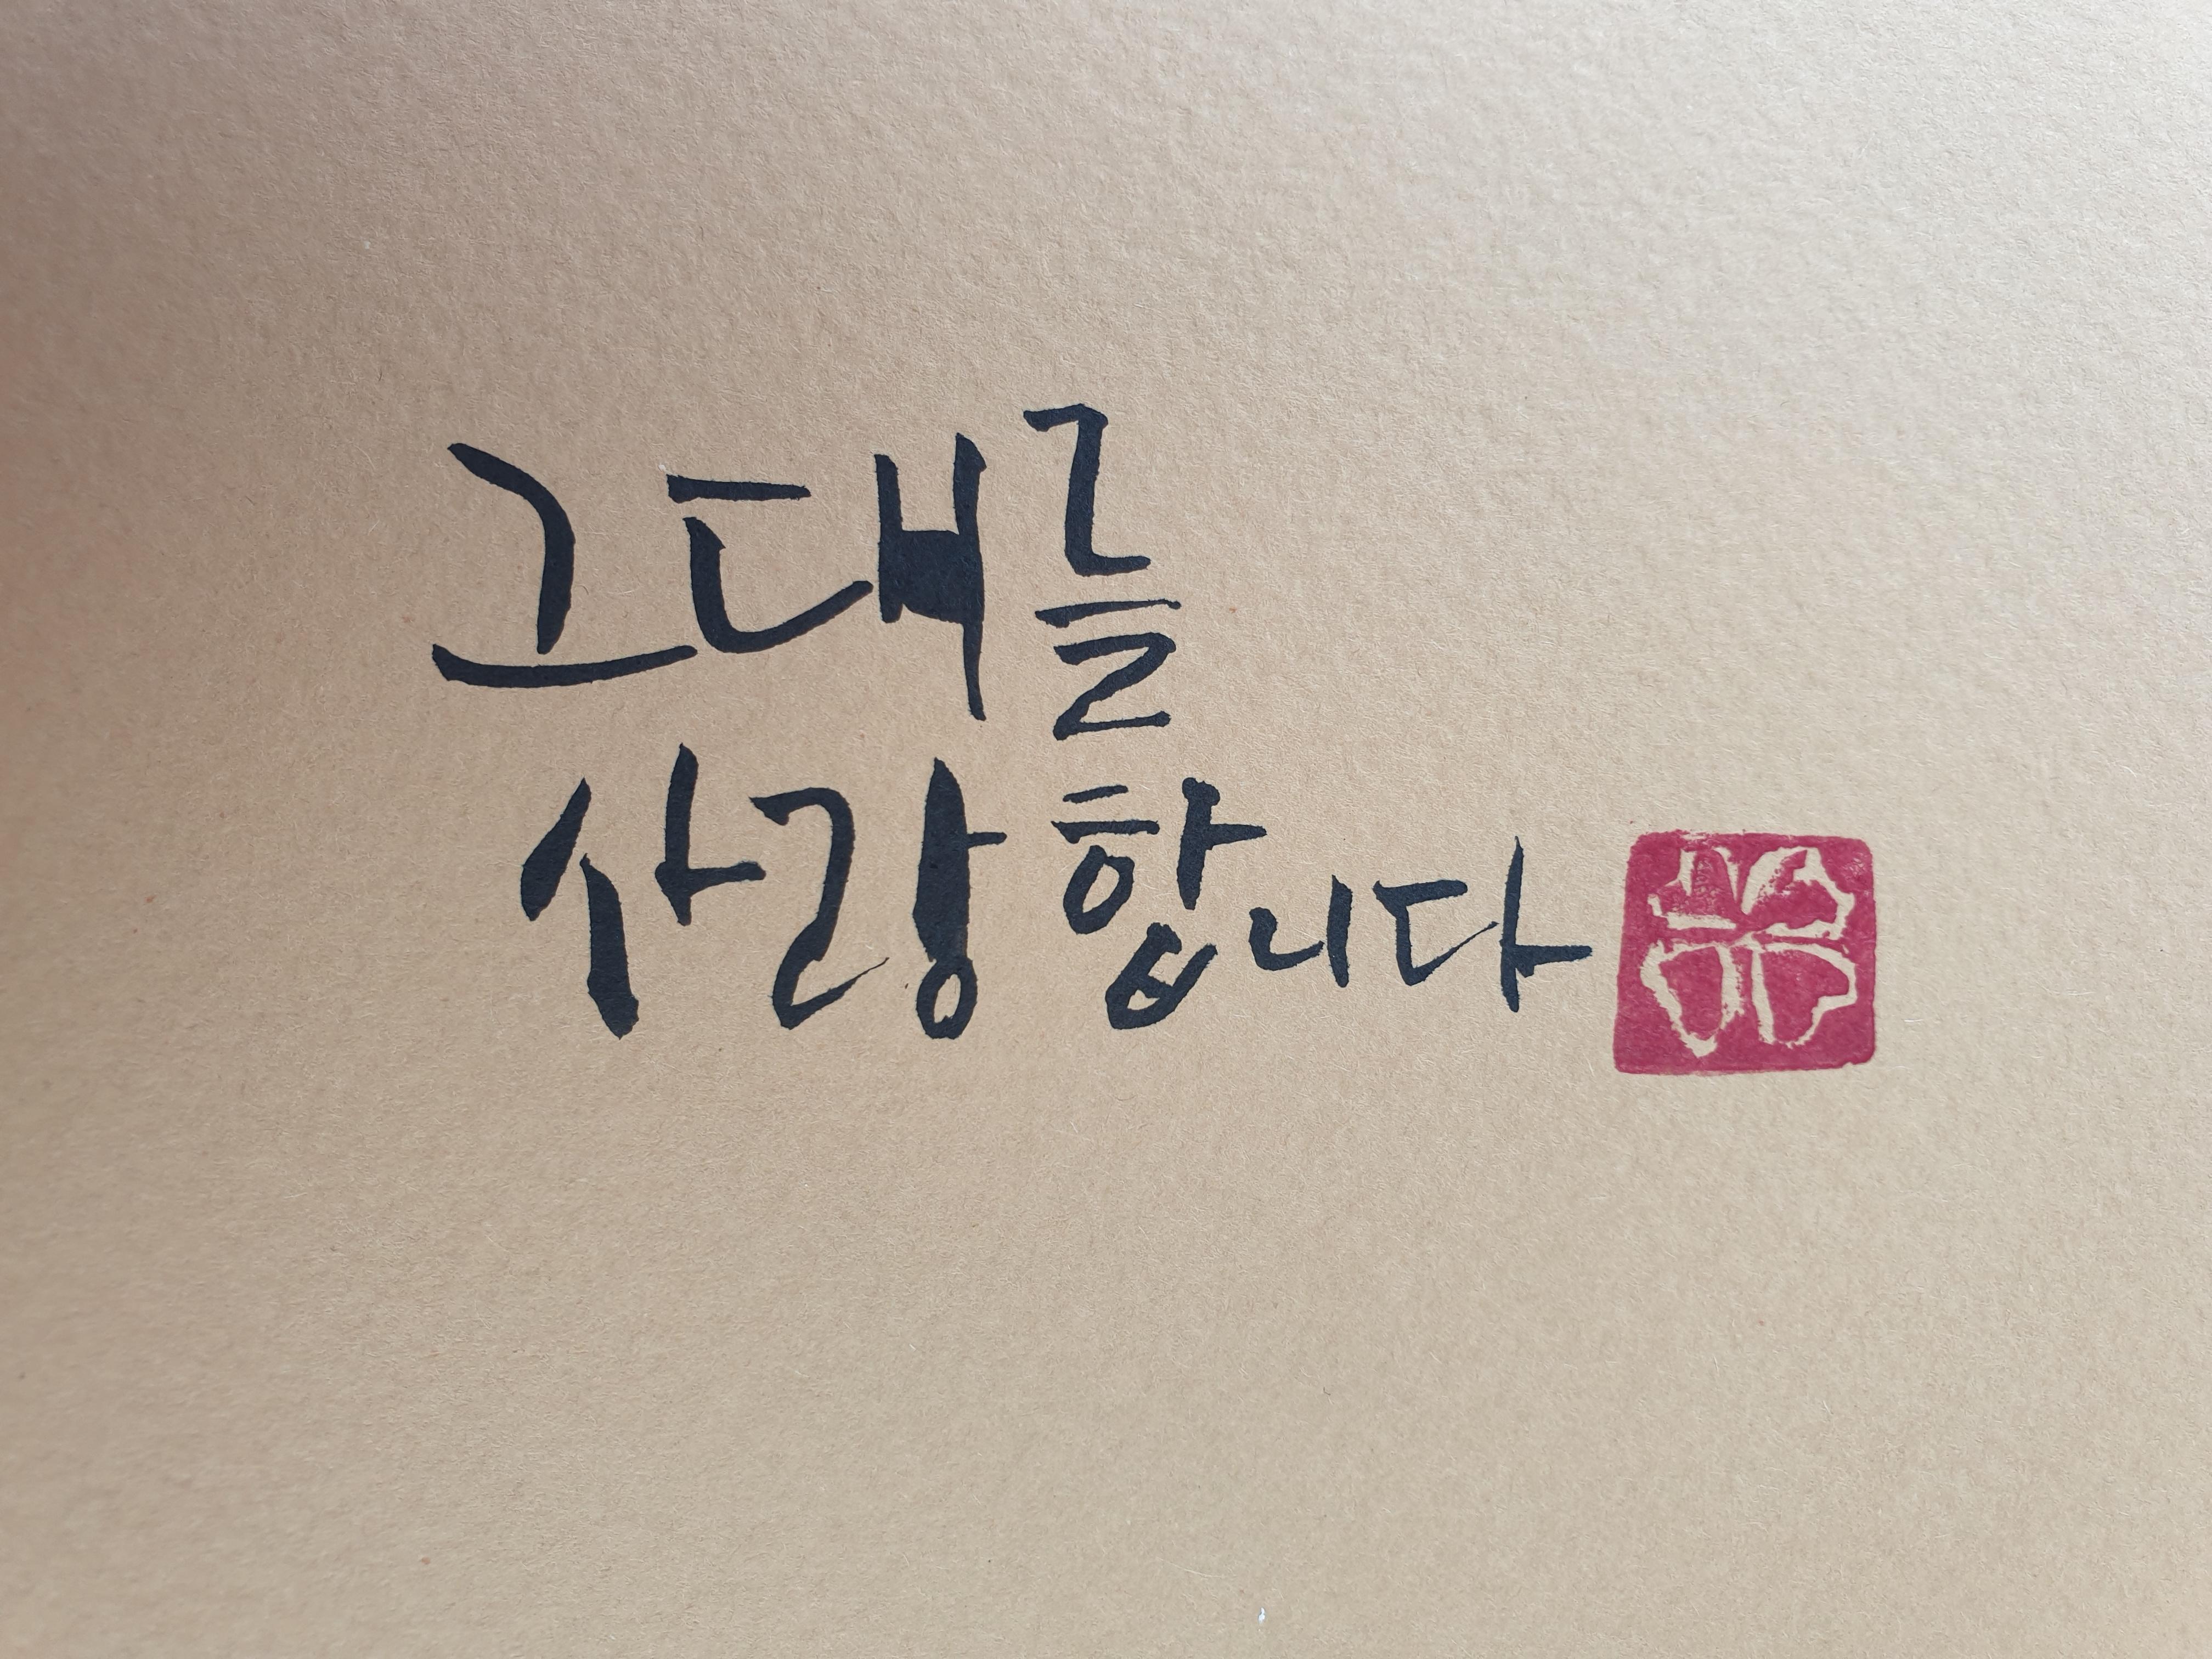 그대를
사랑합니다